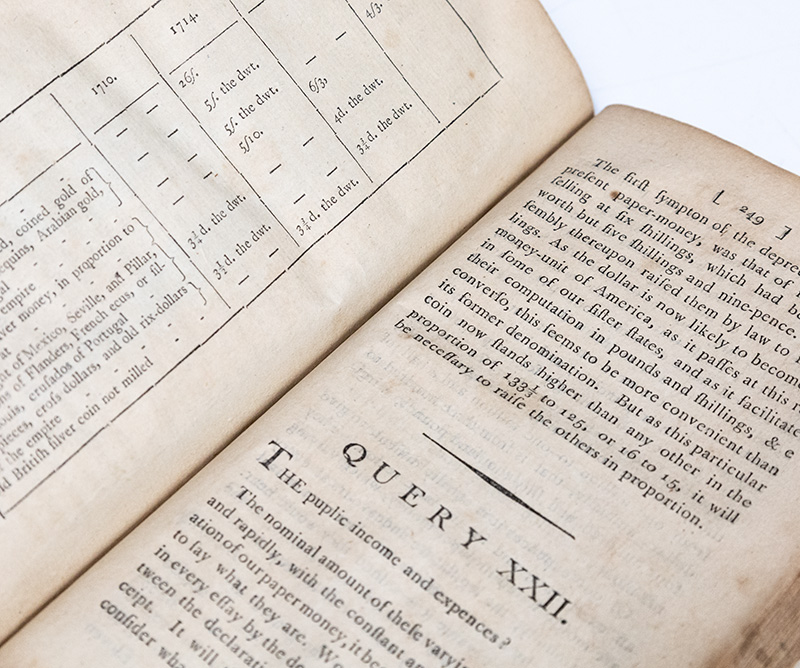 1710.
1714.
4/3.
26ſ.
5ſ. the dwt.
6/3,
5ſ. the dwt.
4d. the dwt.
5ſ10.
3½d. the dwt.
3¾d. the dwt.
3¾d. the dwt.
3½d. the dwt.
d, coined gold of
equins, Arabian gold,
gal
empire
ver money, in proportion to
at
ht of Mexico, Seville, and Pillar,
ns of Flanders, French ecus, or ſil-
ouis, cruſados of Portugal
pieces, croſs-dollars, and old rix-dollars
the empire
ld Britiſh ſilver coin not milled
[ 249 ]
The firſt ſympton of the depre
preſent paper-money, was that of
ſelling at ſix ſhillings, which had b
worth but five ſhillings and nine-pence.
ſembly thereupon raiſed them by law to
lings. As the dollar is now likely to become
money-unit of America, as it paſſes at this r
in ſome of our ſiſter ſtates, and as it facilitate
their computation in pounds and ſhillings, & e
converſo, this ſeems to be more convenient than
its former denomination. But as this particular
coin now ſtands higher than any other in the
proportion of 133⅓ to 125, or 16 to 15, it will
be neceſſary to raiſe the others in proportion.
QUERY XXII.
THE puplic income and expences?
The nominal amount of theſe varyin
and rapidly, with the conſtant an
ation of our paper money, it bec
to ſay what they are. We
in every eſſay by the de
tween the declaratio
ceipt. It will
conſider wha